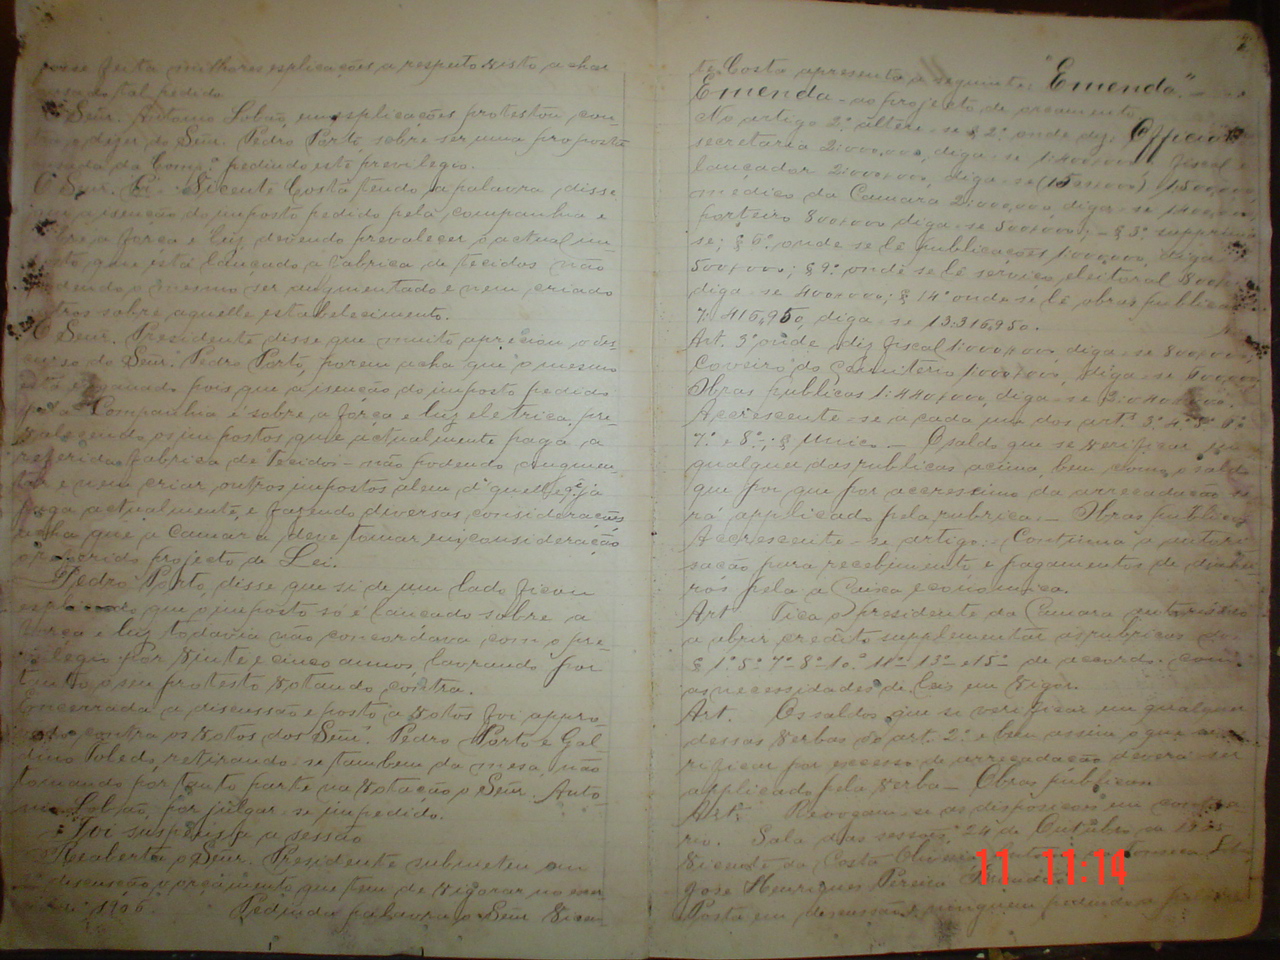 fosse feita milhores esplicações a respeito visto achar
tal pedido
Snr. Antonio Lobão, em esplicações protestou con-
tra o dizer do Snr. Pedro Porto sobre ser uma proposta
da Comp.ª pedindo este previlegio.
O Snr. Vicente Costa tendo a palavra, disse
que a isenção do imposto pedido pela companhia e
sobre a força e luz, devendo prevalecer o actual im-
posto que está lançado a Fabrica de tecidos não
podendo o mesmo ser augmentado e nem criado
outros sobre aquelle estabelecimento.
O Snr. Presidente disse que muito apreciou o dis-
curso do Snr. Pedro Porto, porem acha que o mesmo
está enganado pois que a isenção do imposto pedido
pela Companhia é sobre a força e luz eletrica, pre-
valecendo os impostos que actualmente paga a
referida fabrica de Tecidos - não podendo augmen-
tar e nem criar outros impostos alem d'quelle q' já
paga actualmente, e fazendo diversas considerações
acha que a camara deve tomar em consideração
o referido projecto de Lei.
Pedro Porto, disse que si de um lado ficou
esplicado que o imposto só é lançado sobre a
força e luz todavia não concordava com o pre-
vilegio por vinte e cinco annos, lavrando por
tanto o seu protesto votando contra.
Encerrada a discussão e posto a votos foi appro-
vado contra os votos dos Snr. Pedro Porto e Gal-
dino Toledo, retirando-se tambem da mesa, não
tomando portanto parte na votação o Snr. Anto-
nio Lobão, por julgar-se impedido.
Foi suspensa a sessão
Reaberta o Snr. Presidente submeteu em
discussão o orçamento que tem de vigorar no exer-
1906. Pedindo palavra o Snr. Vicen-
2
te Costa apresenta a seguinte: "Emenda". -
Emenda - ao projecto de orcamento
No artigo 2º altere-se § 2º onde diz, Official
secretaria 2:000,000, diga-se 1:400,000, fiscal e
lançador 2:000,000, diga-se 1:500,000
medico da Camara 2:000,000, diga-se 1:400,000,
porteiro 800,000 diga-se 500,000; - § 5º supprima
se; § 6º onde se lê publicações 1:000,000, diga-se
500,000; § 9º onde se lê serviço eleitoral 800,000
diga-se 400,000; § 14º onde se lê obras publicas
7:416,950, diga-se 13.316,950.
Art. 3º onde diz fiscal 1:000,000, diga-se 800,000,
Coveiro do Cemiterio 1:000,000, diga-se 600,000
Obras publicas 1:440,000, diga-se 2:040,000.
Accrescente-se a cada um dos artºs 3º 4º 5º 6º
7º e 8º; § Unico. - O saldo que se verificar em
qualquer das rubricas acima, bem como o saldo
que for que por accressimo da arrecadação se-
rá applicado pela rubrica - Obras publicas
Accrescente-se artigo: - Continua a autori-
sação para recebimento e pagamentos de dinhei-
ros pela a Caixa economica.
Art Fica o presidente da Camara autorisado
a abrir credito supplementar as rubricas dos
§ 1º 5º 7º 8º 10º 11º 13º e 15º de accordo com
as necessidades da lei em vigor.
Art. Os saldos que si verificar em qualquer
dessas verbas do art. 2º e bem assim o que se ve-
rificar por excesso de arrecadação devera ser
applicado pela verba - Obras publicas
Art. Revogam-se as disposições em contra-
rio. Sala das sessões 24 de Outubro de 1905
Vicente da Costa
José Henriques Pereira
Posta em discussão e ninguem pedindo a palavra
11 11:14